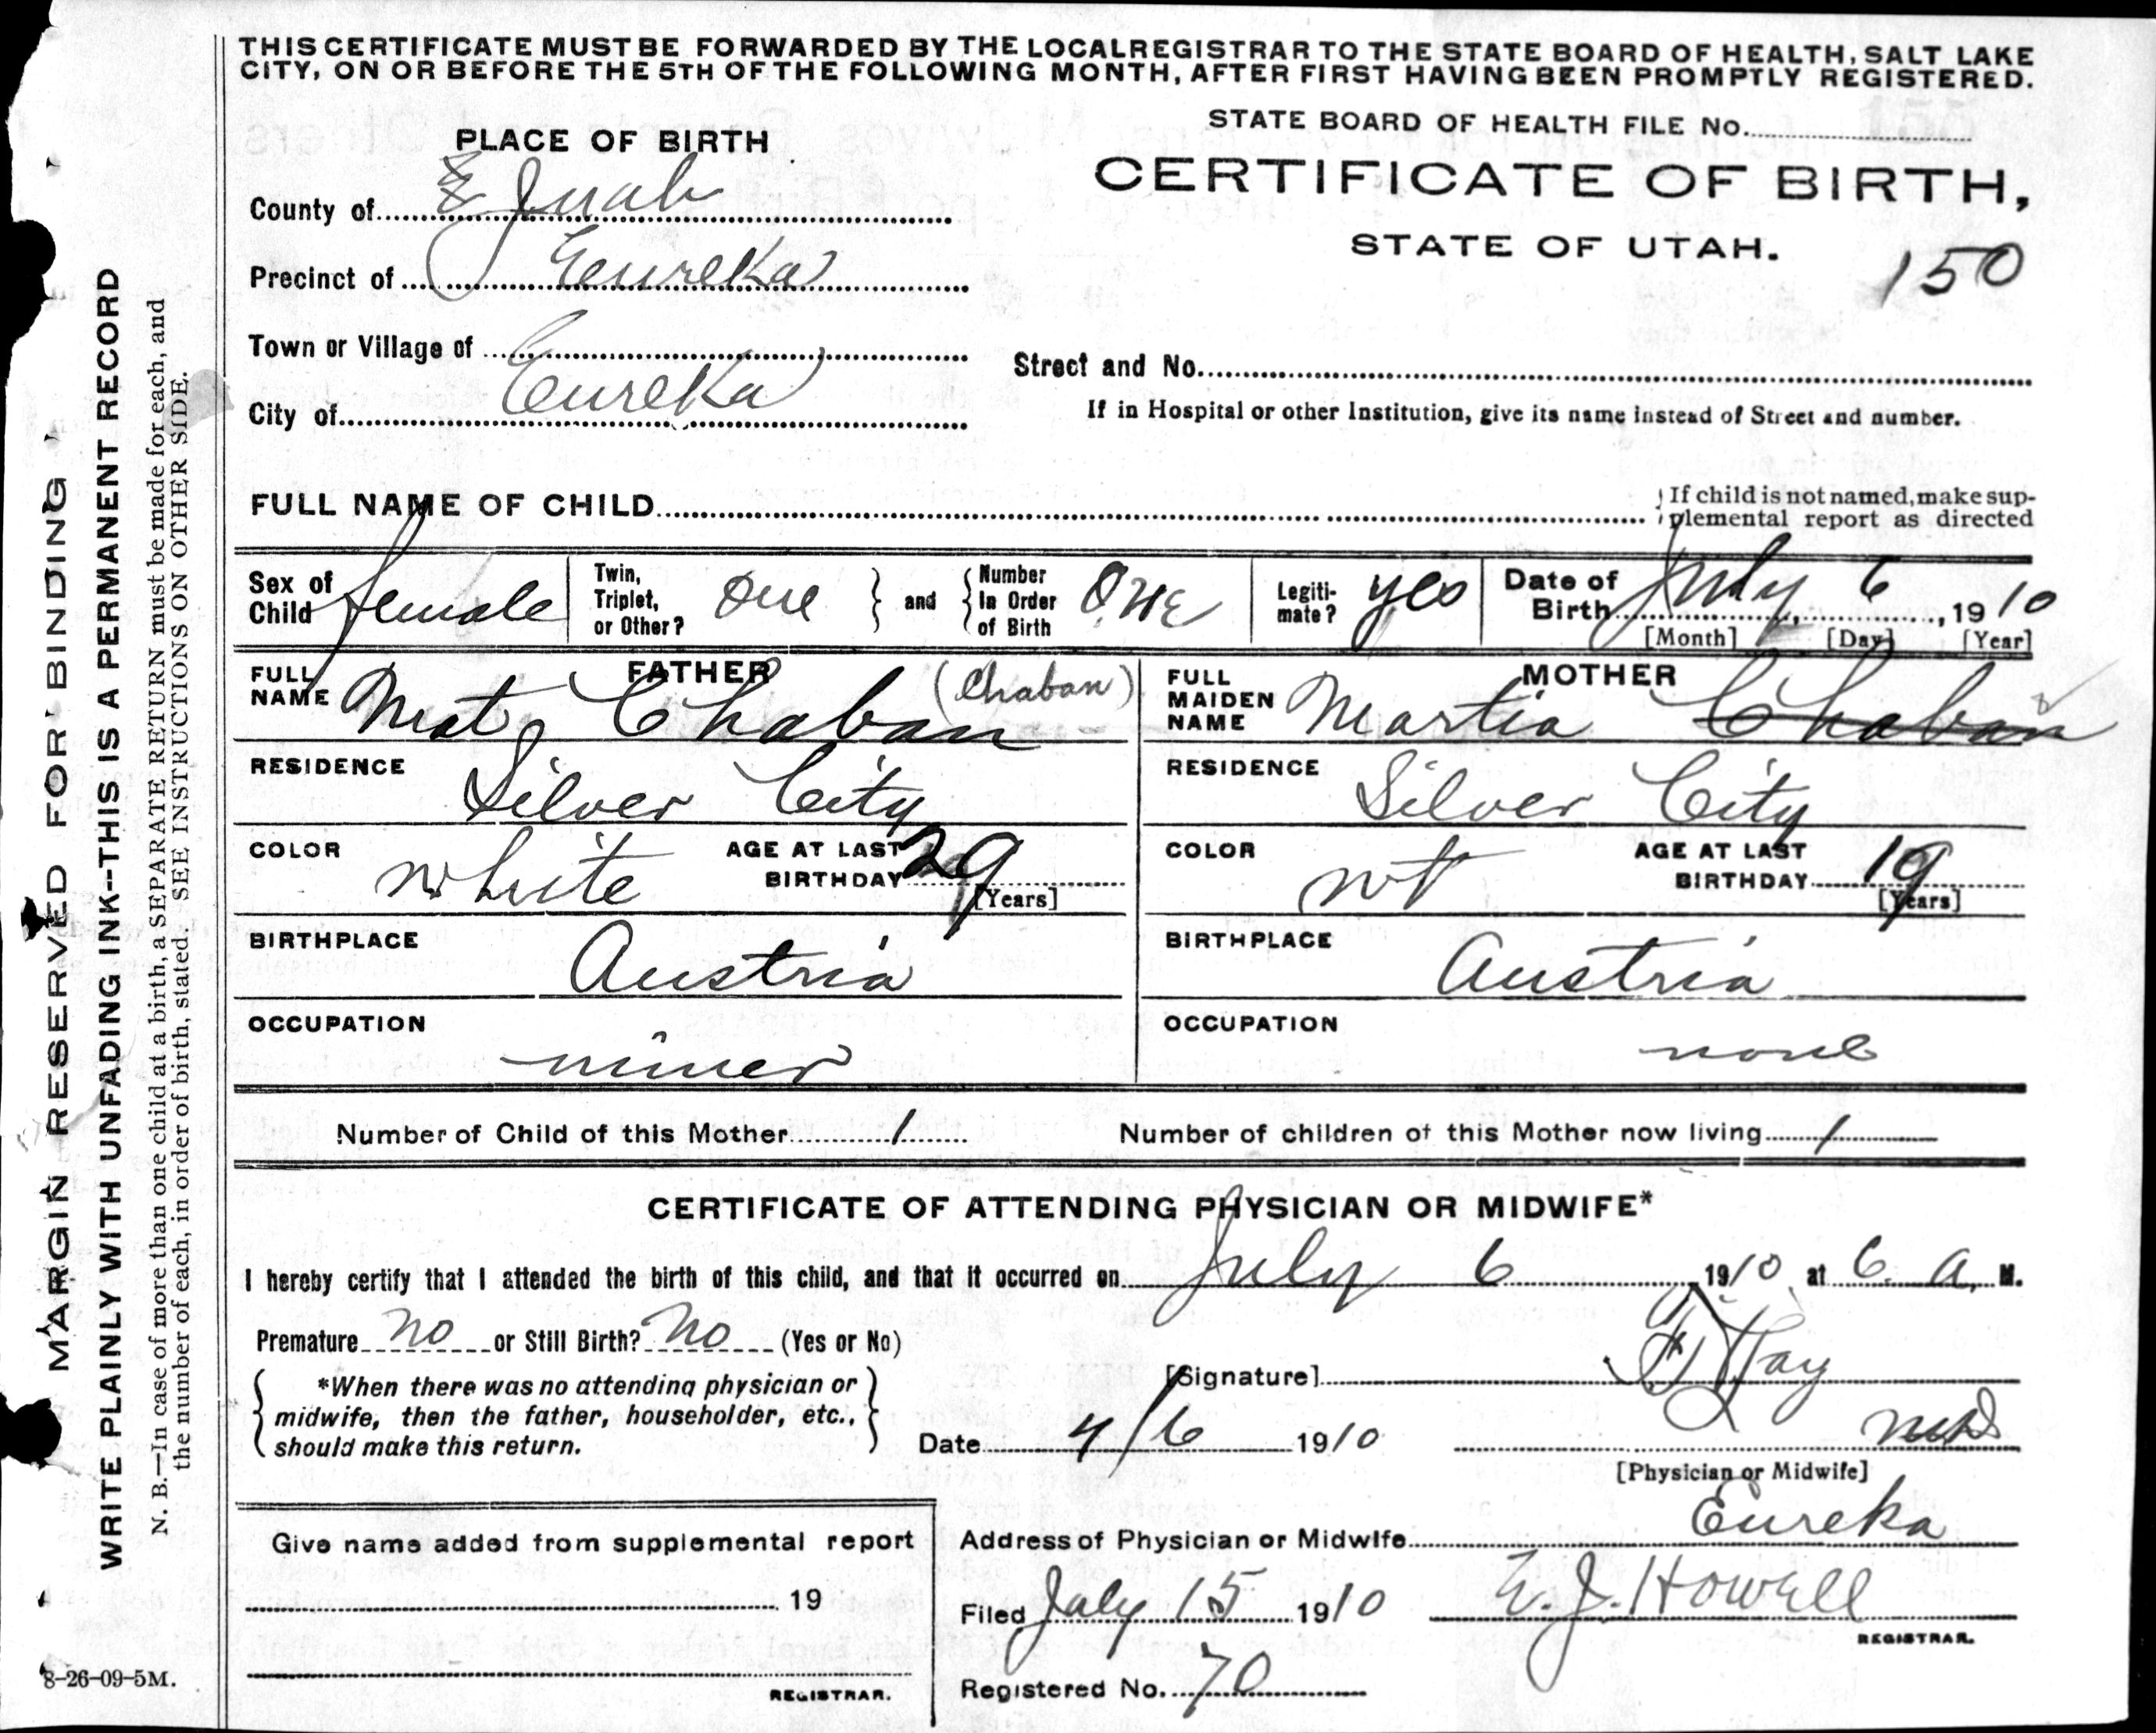 THIS CERTIFICATE MUST BE FORWARDED BY THE LOCAL REGISTRAR TO THE STATE BOARD OF HEALTH, SALT LAKE
CITY, ON OR BEFORE THE 5TH OF THE FOLLOWING MONTH, AFTER FIRST HAVING BEEN PROMPTLY REGISTERED.
STATE BOARD OF HEALTH FILE No.
PLACE OF BIRTH
CERTIFICATE OF BIRTH,
STATE OF UTAH.
150
County of Juab
Precinct of Eureka
Town or Village of
City of Eureka
Street and No.
If in Hospital or other Institution, give its name instead of Street and number.
FULL NAME OF CHILD
If child is not named, make sup-
plemental report as directed
Sex of Child female
Twin, Triplet, or Other? One and Number In Order of Birth One
Legiti-mate? yes
Date of Birth July 6, 1910
[Month] [Day] [Year]
FATHER
FULL NAME Mat Chaban (Chaban)
RESIDENCE Silver City
COLOR White AGE AT LAST BIRTHDAY 29 [Years]
BIRTHPLACE Austria
OCCUPATION miner
MOTHER
FULL MAIDEN NAME Martia Chaban
RESIDENCE Silver City
COLOR wt AGE AT LAST BIRTHDAY 19 [Years]
BIRTHPLACE Austria
OCCUPATION none
Number of Child of this Mother 1 Number of children of this Mother now living 1
CERTIFICATE OF ATTENDING PHYSICIAN OR MIDWIFE*
I hereby certify that I attended the birth of this child, and that it occurred on July 6 1910, at 6 a. M.
Premature no or Still Birth? no (Yes or No)
*When there was no attending physician or
midwife, then the father, householder, etc.,
should make this return.
[Signature]
Date 1910 MD
[Physician or Midwife]
Address of Physician or Midwife Eureka
Give name added from supplemental report
19
REGISTRAR.
Filed July 15 1910 E. J. Howell
REGISTRAR.
Registered No. 70
MARGIN RESERVED FOR BINDING
WRITE PLAINLY WITH UNFADING INK--THIS IS A PERMANENT RECORD
N. B.—In case of more than one child at a birth, a SEPARATE RETURN must be made for each, and
the number of each, in order of birth, stated. SEE INSTRUCTIONS ON OTHER SIDE.
8-26-09-5M.